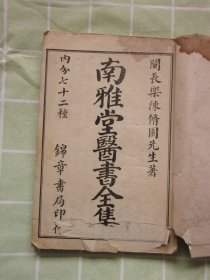 閩長樂陳脩園先生著
南雅堂醫書全集
內分七十二種
錦章書局印行